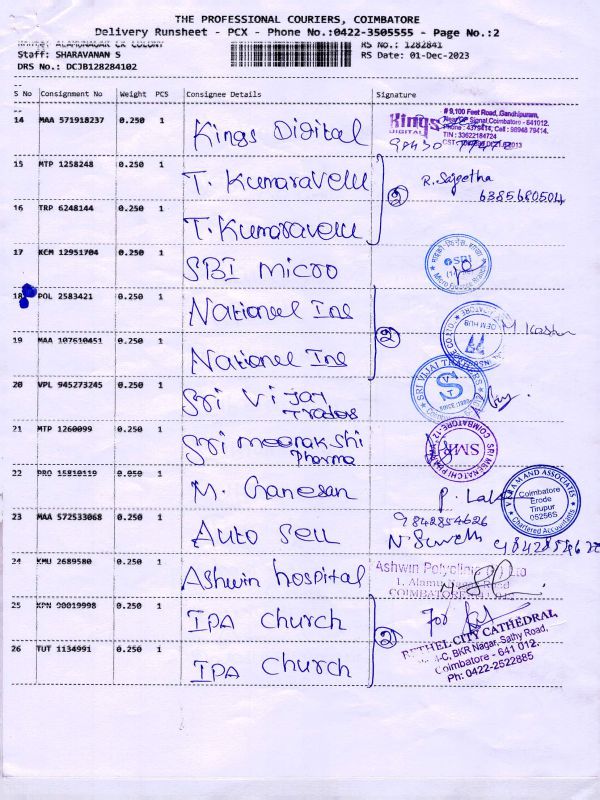 THE PROFESSIONAL COURIERS, COIMBATORE
Delivery Runsheet - PCX - Phone No.:0422-3505555 - Page No.:2
RS No.: 1282841
Staff: SHARAVANAN S RS Date: 01-Dec-2023
DRS No.: DCJB128284102
S No Consignment No Weight PCS Consignee Details Signature
14 MAA 571918237 0.250 1 Kings Digital
Kings DIGITAL
# 9,100 Feet Road, Gandhipuram,
Signal, Coimbatore - 641012.
Phone : 4379414, Cell : 98948 79414.
TIN : 33622184724
15 MTP 1258248 0.250 1 T. Kumaravelu
R. Sageetha
6385680504
2
16 TRP 6248144 0.250 1 T. Kumaravelu
17 KCM 12951704 0.250 1 SBI micro
SBI
18 POL 2583421 0.250 1 National Ins
2
19 MAA 107610451 0.250 1 National Ins
20 VPL 945273245 0.250 1 Sri Vijay Traders
SRI VIJAI TRADERS
S
21 MTP 1260099 0.250 1 Sri meenakshi Pharma
SMP
COIMBATORE-12
22 PRO 15810119 0.050 1 M. Ganesan
9842854626
VIKRAM AND ASSOCIATES
Coimbatore
Erode
Tirupur
05256S
Chartered Accountants
23 MAA 572533068 0.250 1 Auto Sell
24 KMU 2689580 0.250 1 Ashwin hospital
Ashwin Polyclinic
1, Alamu Nagar Road
COIMBATORE
25 KPN 90019998 0.250 1 IPA church
For
2
BETHEL CITY CATHEDRAL,
BKR Nagar, Sathy Road,
Coimbatore - 641 012.
Ph: 0422-2522885
26 TUT 1134991 0.250 1 IPA church